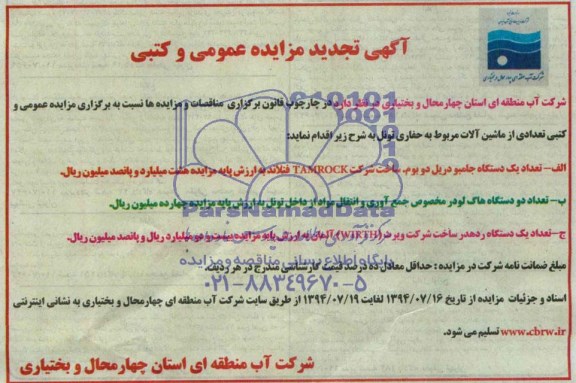 شرکت آب منطقه ای چهارمحال و بختیاری
آگهی تجدید مزایده عمومی و کتبی
شرکت آب منطقه ای استان چهارمحال و بختیاری در نظر دارد در چارچوب قانون برگزاری مناقصات و مزایده ها نسبت به برگزاری مزایده عمومی و
کتبی تعدادی از ماشین آلات مربوط به حفاری تونل به شرح زیر اقدام نماید:
الف- تعداد یک دستگاه جامبو دریل دو بوم، ساخت شرکت TAMROCK فنلاند به ارزش پایه مزایده هفت میلیارد و پانصد میلیون ریال.
ب- تعداد دو دستگاه هاگ لودر مخصوص جمع آوری و انتقال مواد از داخل تونل به ارزش پایه مزایده چهارده میلیون ریال.
ج- تعداد یک دستگاه ردهدر ساخت شرکت ویرث (WIRTH) آلمان به ارزش پایه مزایده بیست و دو میلیارد ریال و پانصد میلیون ریال.
مبلغ ضمانت نامه شرکت در مزایده : حداقل معادل ده درصد قیمت کارشناسی مندرج در هر ردیف.
اسناد و جزئیات مزایده از تاریخ ۱۳۹۴/۰۷/۱۶ لغایت ۱۳۹۴/۰۷/۱۹ از طریق سایت شرکت آب منطقه ای چهارمحال و بختیاری به نشانی اینترنتی
www.cbrw.ir تسلیم می شود.
شرکت آب منطقه ای استان چهارمحال و بختیاری
ParsNamadData
پایگاه اطلاع رسانی مناقصه و مزایده
۰۲۱-۸۸۳۴۹۶۷۰-۵